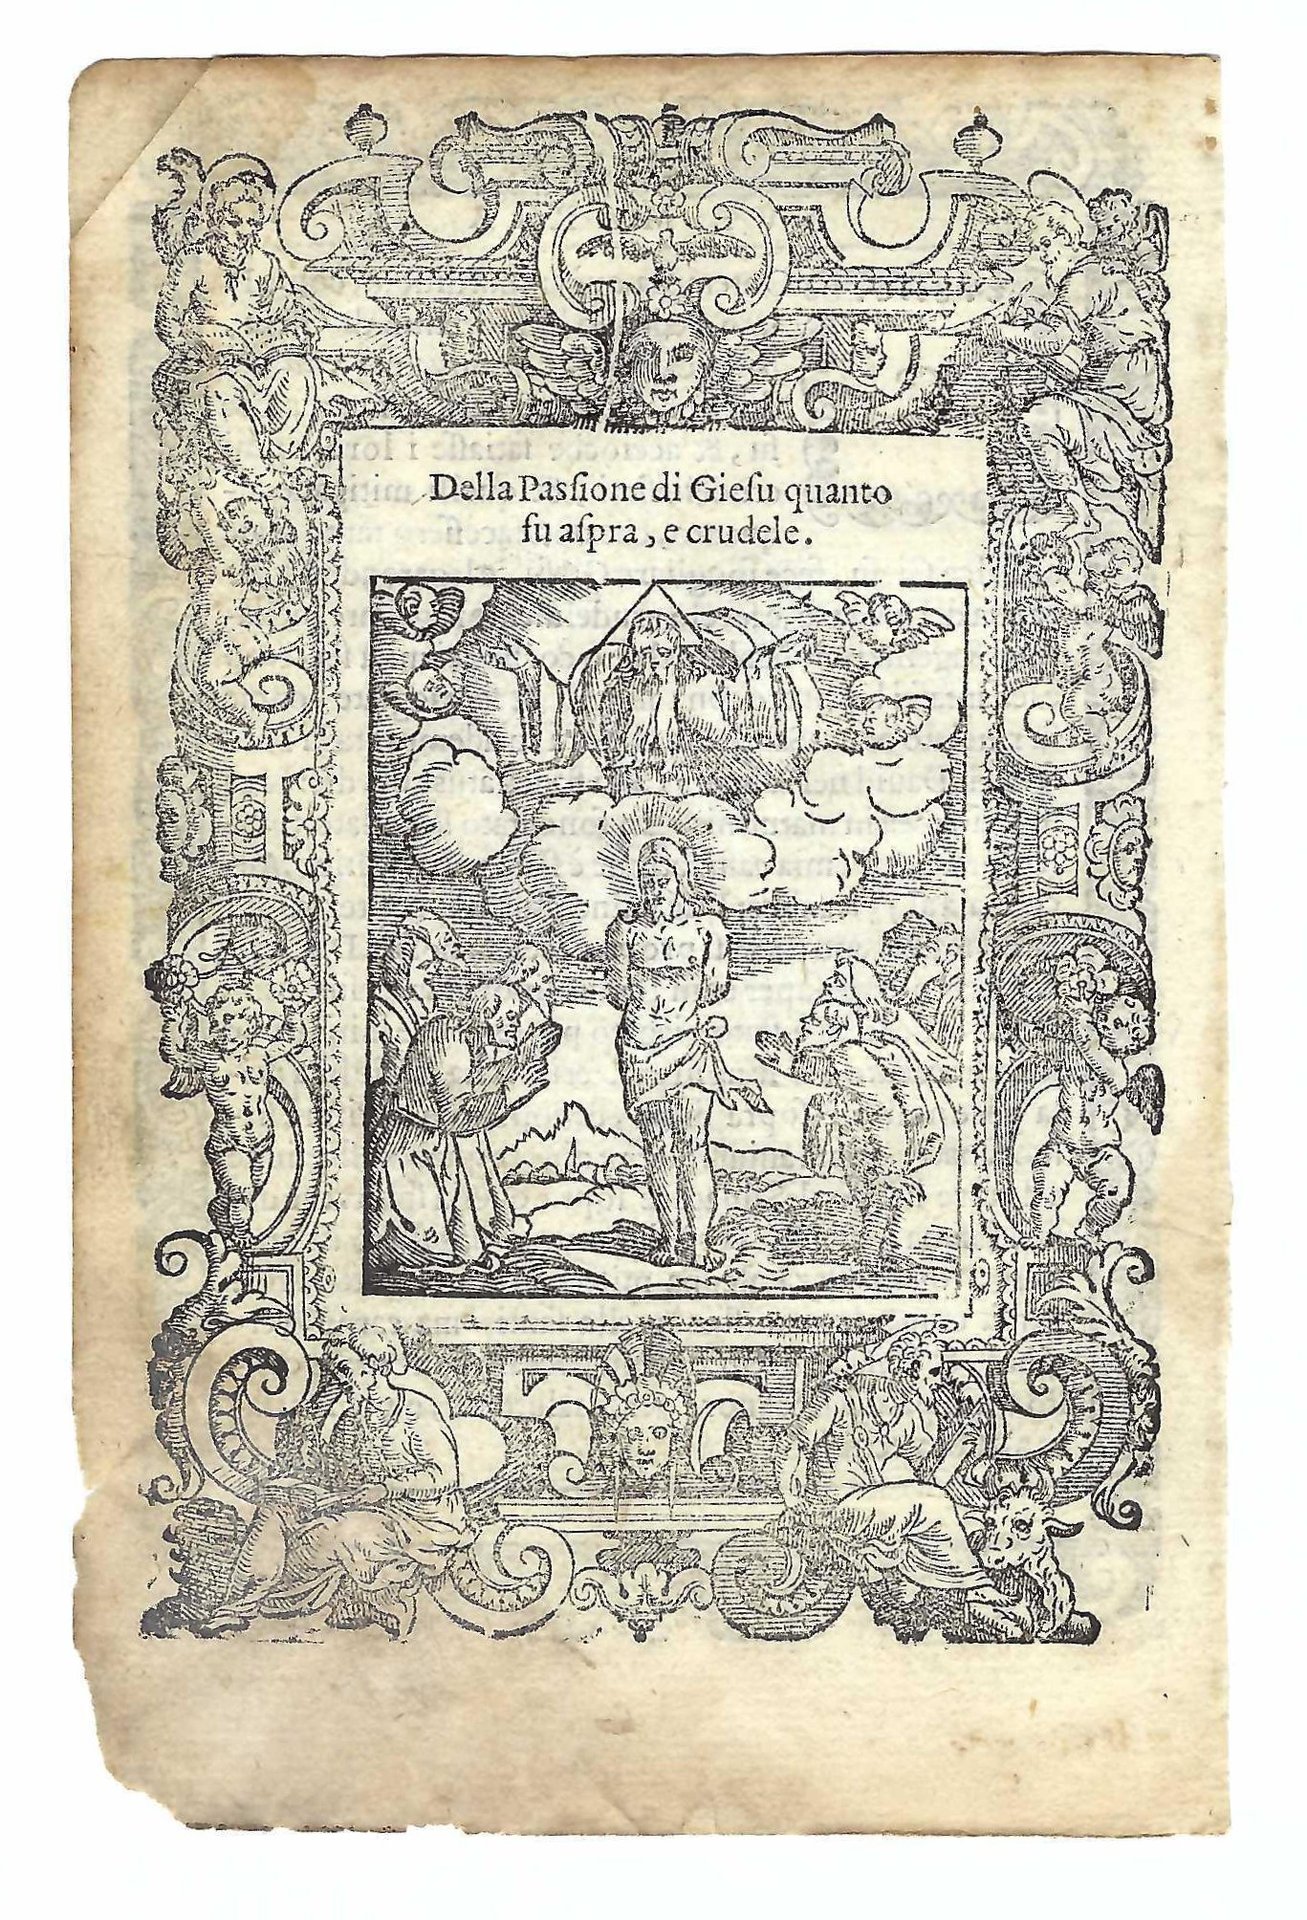 Della Paſſione di Gieſu quanto
fu aſpra, e crudele.